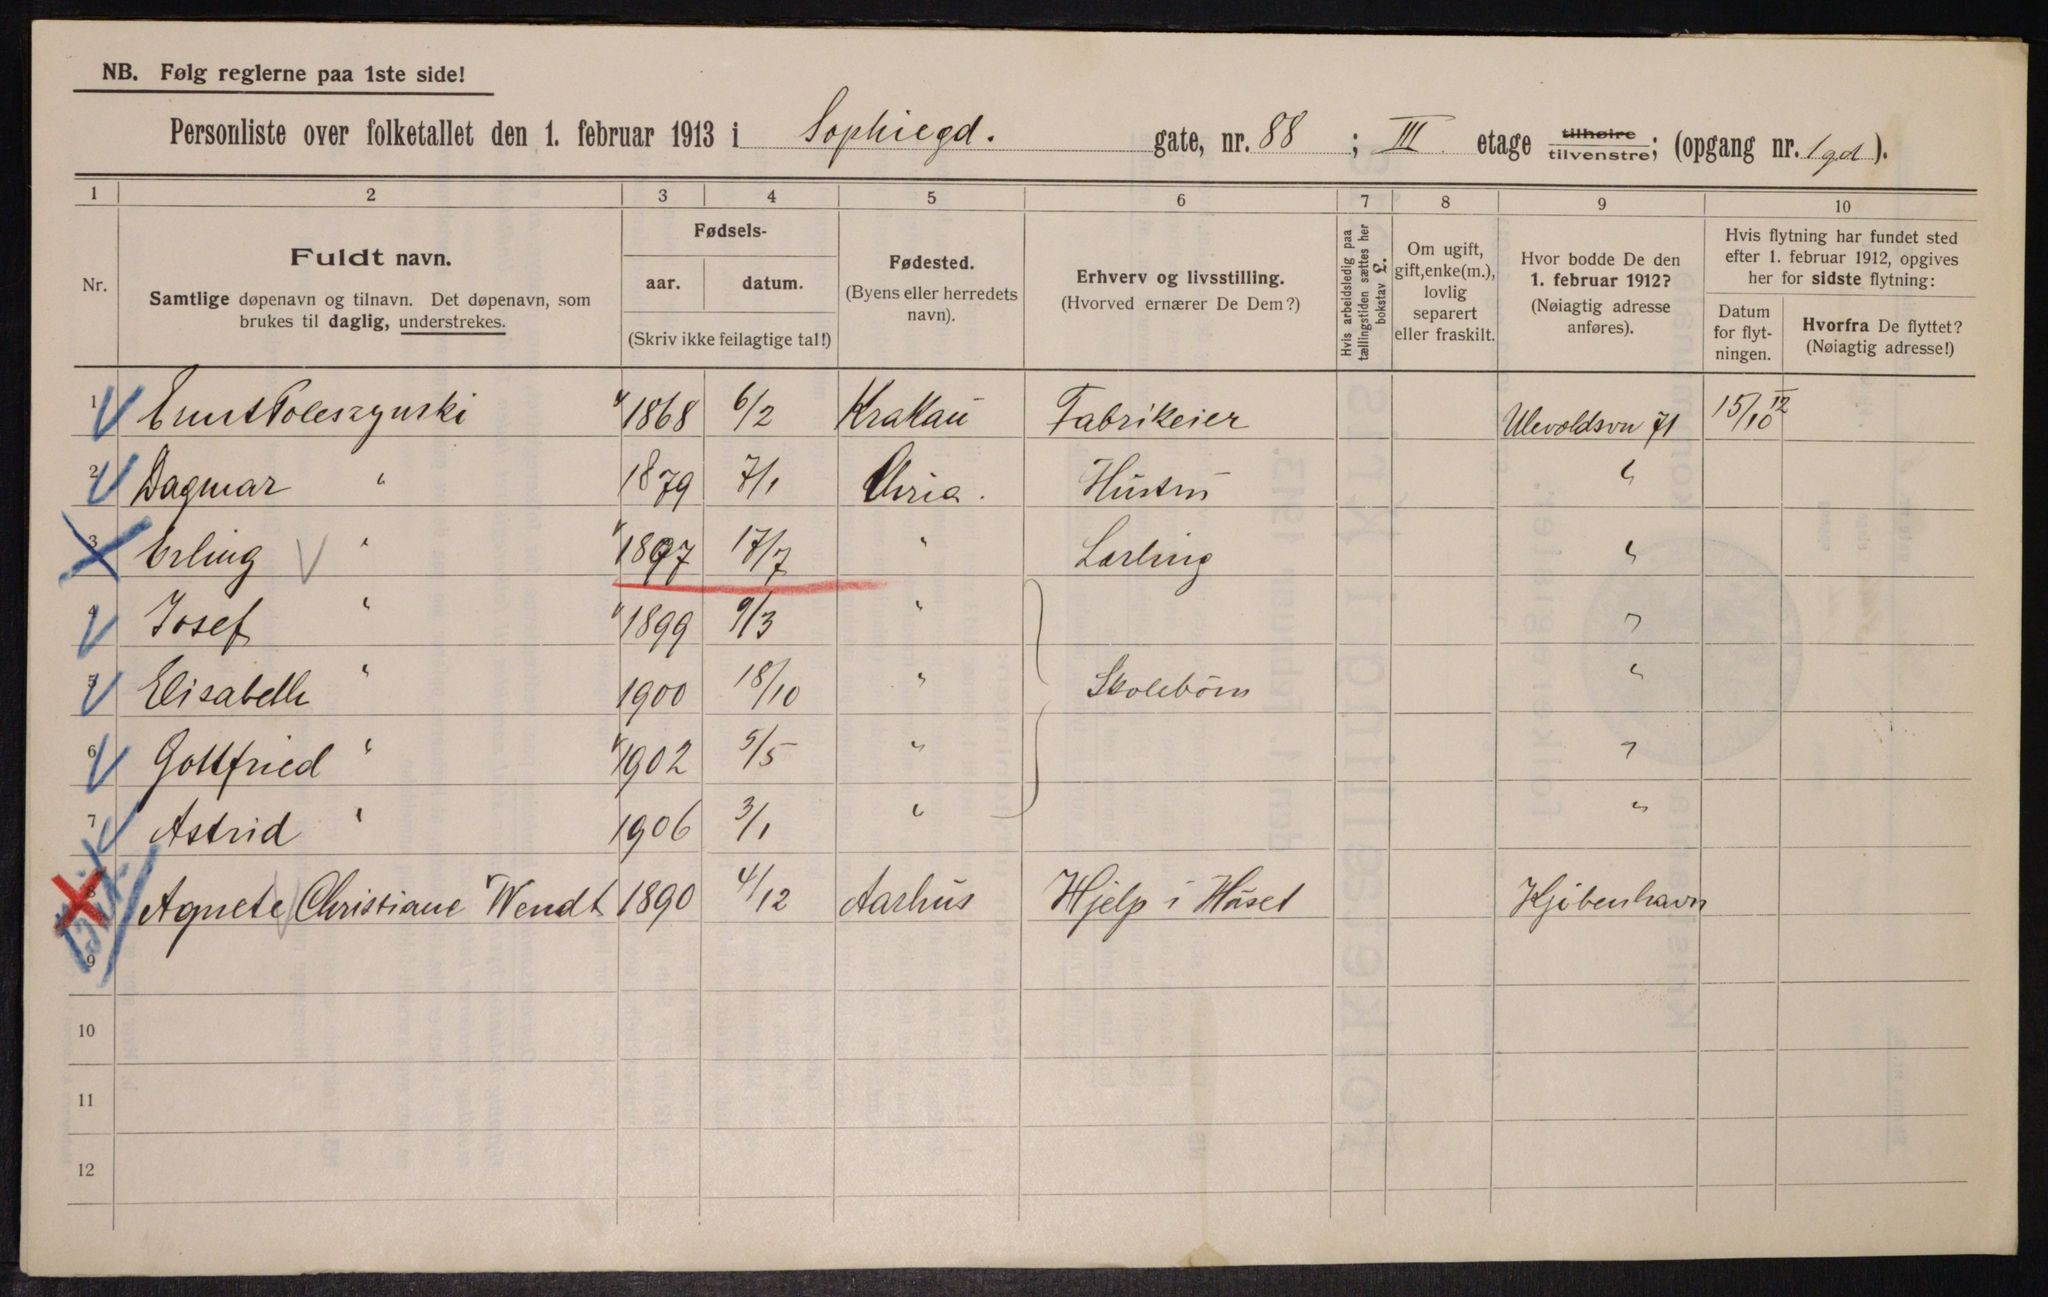 NB. Følg reglerne paa 1ste side!
Personliste over folketallet den 1. februar 1913 i Sophiegd. gate, nr. 88 ; III etage tilhøire tilvenstre; (opgang nr. 1 gd ).
1 2 3 4 5 6 7 8 9 10
Nr.
Fuldt navn.
Samtlige døpenavn og tilnavn. Det døpenavn, som
brukes til daglig, understrekes.
Fødsels-
aar. datum.
(Skriv ikke feilagtige tal!)
Fødested.
(Byens eller herredets
navn).
Erhverv og livsstilling.
(Hvorved ernærer De Dem?)
Hvis arbeidsledig paa
tællingstiden sættes her
bokstav L.
Om ugift,
gift, enke(m.),
lovlig
separert
eller fraskilt.
Hvor bodde De den
1. februar 1912?
(Nøiagtig adresse
anføres).
Hvis flytning har fundet sted
efter 1. februar 1912, opgives
her for sidste flytning:
Datum
for flyt-
ningen.
Hvorfra De flyttet?
(Nøiagtig adresse!)
1 Ernst Poleszynski 1868 6/2 Krakau Fabrikeier Ulevoldsvn 71 15/10 12
2 Dagmar " 1879 7/1 Chria. Hustru "
3 Erling " 1897 17/7 " Lærling "
4 Josef " 1899 9/3 " "
5 Elisabeth " 1900 18/10 " Skolebörn "
6 Gottfried " 1902 5/5 " "
7 Astrid " 1906 3/1 " "
8 Agnete Christiane Wendt 1890 4/12 Aarhus Hjelp i Huset Kjöbenhavn
9
10
11
12